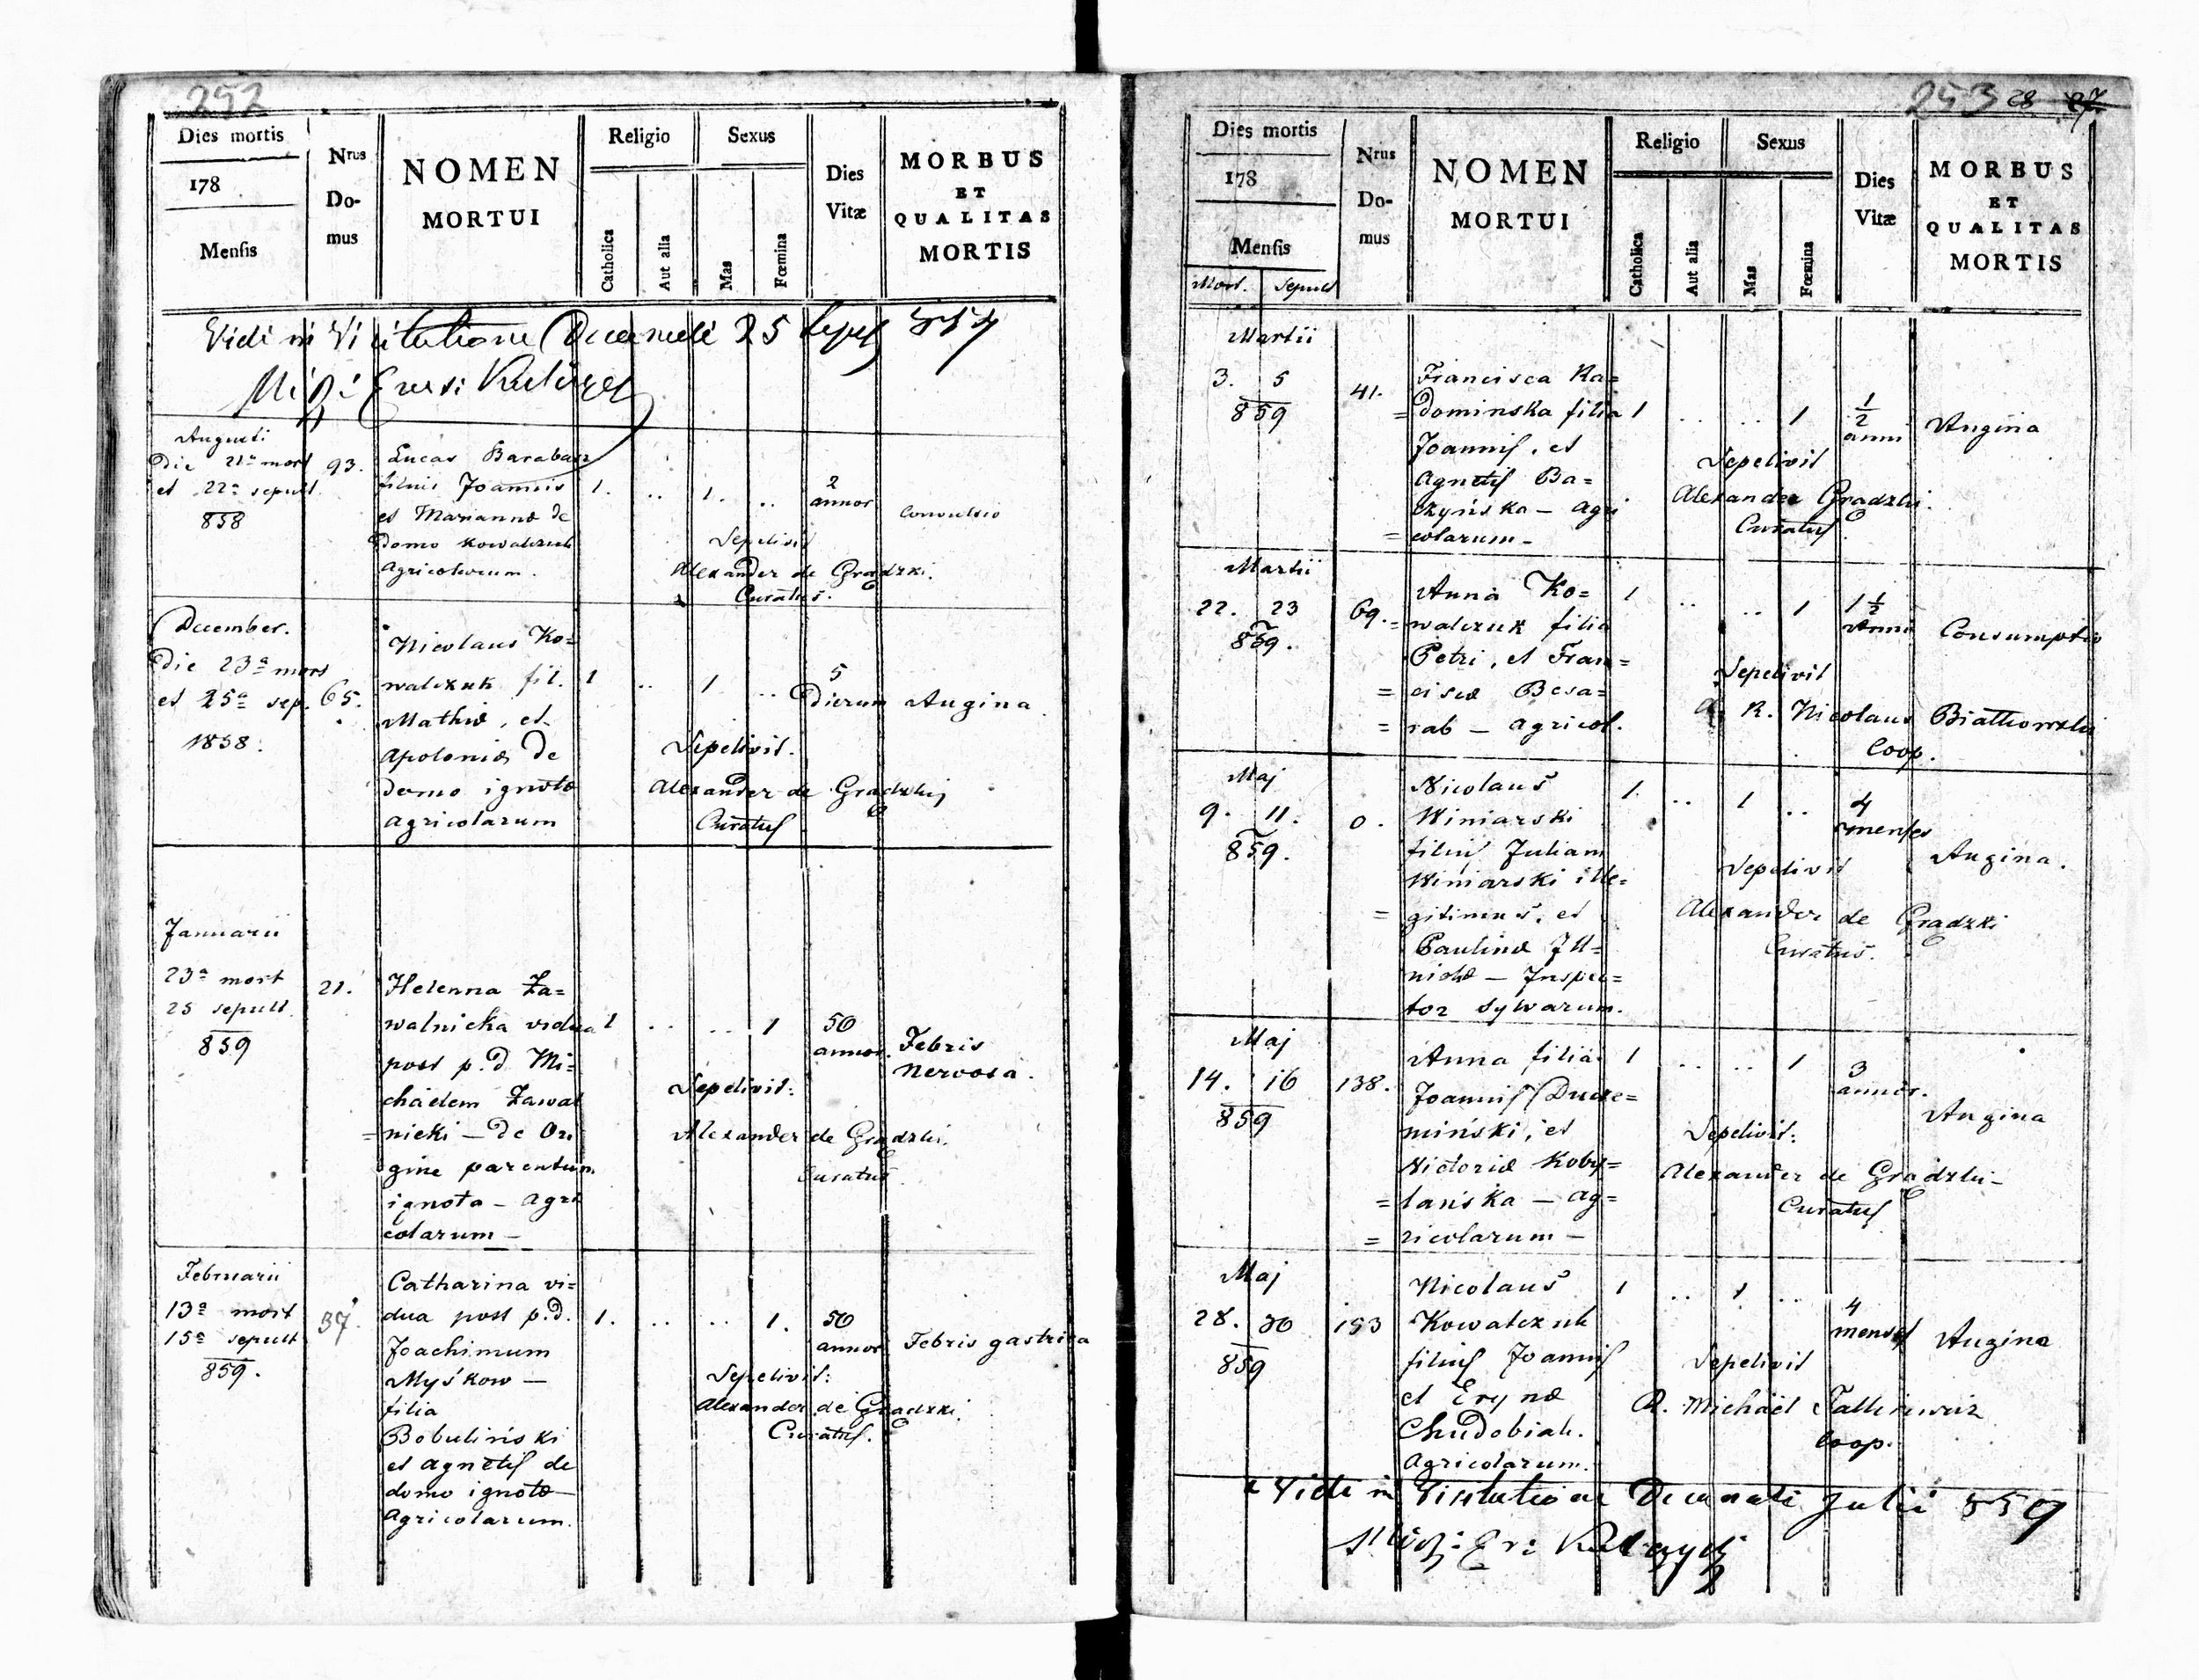 252
Dies mortis
178
Mensis
Nrus
Do-
mus
NOMEN
MORTUI
Religio
Catholica
Aut alia
Sexus
Mas
Fœmina
Dies
Vitæ
MORBUS
ET
QUALITAS
MORTIS
Vidi in Visitatione Decanali 25
Augusti
die 21a mort
et 22a sepult.
858
93.
Lucas Barabasz
filius Joannis
et Mariannæ de
domo Kowalczuk
Agricolarum.
1. .. 1. ..
2
annor
Convulsio
Sepelivit
Alexander de Gradzki.
Curatus.
December.
die 23a mors
et 25a sep.
1858.
65.
Nicolaus Ko=
walczuk fil.
Mathiæ, et
Apoloniæ de
domo ignota
Agricolarum
1 .. 1 ..
5
Dierum
Angina
Sepelivit.
Alexander de Gradzki
Curatus
Januarii
23a mort
25 sepult
859
21.
Helenna Za=
walnicka vidua
post p.d Mi=
chaelem Zawal
=nicki — de Ori
gine parentum
ignota — Agri
colarum —
1 .. .. 1
50
annor.
Febris
Nervosa.
Sepelivit:
Alexander de Gradzki.
Curatus
Februarii
13a mort
15a sepult
859.
37.
Catharina vi=
dua post p.d.
Joachimum
Myśkow —
filia
Bobulinski
et Agnetis de
domo ignota —
Agricolarum.
1. .. .. 1.
50
annor
Febris gastrica
Sepelivit:
Alexander de Gradzki.
Curatus.
253 28 27.
Dies mortis
178
Mensis
Mort. Sepult
Nrus
Do-
mus
NOMEN
MORTUI
Religio
Catholica
Aut alia
Sexus
Mas
Fœmina
Dies
Vitæ
MORBUS
ET
QUALITAS
MORTIS
Martii
3. 5
859
41.
Francisca Ra=
=dominska filia
Joannis, et
Agnetis Ba=
czyńska — Agri
=colarum —
1 .. .. 1
1/2
anni
Angina
Sepelivit
Alexander Gradzki.
Curatus
Martii
22. 23
859.
69.
Anna Ko=
=walczuk filia
Petri, et Fran=
=ciscæ Besa=
=rab — Agricol.
1 .. .. 1
1 1/2
Anni
Consumptio
Sepelivit
R. Nicolaus Białkowski
Coop.
Maj
9. 11.
859.
0.
Nicolaus
Winiarski
filius Juliani
Winiarski ille=
=gitimus, et
Paulinæ
— Inspec=
tor sylwarum.
1. .. 1 ..
4
menses
Angina.
Sepelivit
Alexander de Gradzki
Curatus.
Maj
14. 16
859
138.
Anna filia
Joannis
miński, et
Victoriæ Koby=
=lańska — Ag=
=ricolarum —
1 .. .. 1
3
annor.
Angina
Sepelivit:
Alexander de Gradzki —
Curatus
Maj
28. 30
859
193
Nicolaus
Kowalczuk
filius Joannis
et Erynæ
Chudobiak.
Agricolarum.
1 .. 1 ..
4
menses
Angina
Sepelivit
R. Michael
Coop.
Vidi in Visitatione Decanali Julii 859